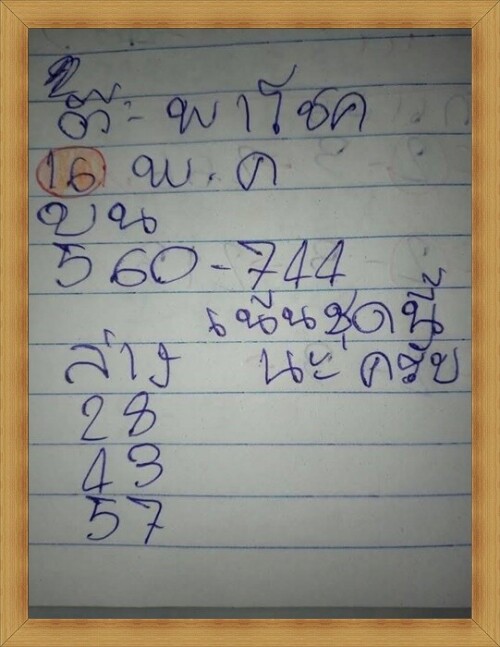 พาโชค
16 พ.ค
บน
560-744
เน้นชุดนี้
ล่าง นะครับ
28
43
57